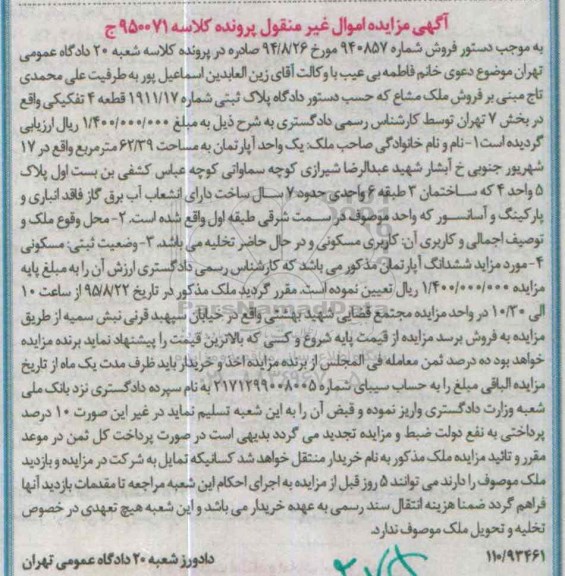 آگهی مزایده اموال غیر منقول پرونده کلاسه ۹۵۰۰۷۱ ج
به موجب دستور فروش شماره ۹۴۰۸۵۷ مورخ ۹۴/۸/۲۶ صادره در پرونده کلاسه شعبه ۲۰ دادگاه عمومی
تهران موضوع دعوی خانم فاطمه بی عیب با وکالت آقای زین العابدین اسماعیل پور به طرفیت علی محمدی
تاج مبنی بر فروش ملک مشاع که حسب دستور دادگاه پلاک ثبتی شماره ۱۹۱۱/۱۷ قطعه ۴ تفکیکی واقع
در بخش ۷ تهران توسط کارشناس رسمی دادگستری به شرح ذیل به مبلغ ۱/۴۰۰/۰۰۰/۰۰۰ ریال ارزیابی
گردیده است ۱- نام و نام خانوادگی صاحب ملک: یک واحد آپارتمان به مساحت ۶۲/۳۹ مترمربع واقع در ۱۷
شهریور جنوبی خ آبشار شهید عبدالرضا شیرازی کوچه سماواتی کوچه عباس کشفی بن بست اول پلاک
۵ واحد ۴ که ساختمان ۳ طبقه ۶ واحدی حدود ۷ سال ساخت دارای انشعاب آب برق گاز فاقد انباری و
پارکینگ و آسانسور که واحد موصوف در سمت شرقی طبقه اول واقع شده است. ۲- محل وقوع ملک و
توصیف اجمالی و کاربری آن: کاربری مسکونی و در حال حاضر تخلیه می باشد. ۳- وضعیت ثبتی: مسکونی
۴- مورد مزاید ششدانگ آپارتمان مذکور می باشد که کارشناس رسمی دادگستری ارزش آن را به مبلغ پایه
مزایده ۱/۴۰۰/۰۰۰/۰۰۰ ریال تعیین نموده است. مقرر گردید ملک مذکور در تاریخ ۹۵/۸/۲۲ از ساعت ۱۰
الی ۱۰/۳۰ در واحد مزایده مجتمع قضایی شهید بهشتی واقع در خیابان سپهبد قرنی نبش سمیه از طریق
مزایده به فروش برسد مزایده از قیمت پایه شروع و کسی که بالاترین قیمت را پیشنهاد نماید برنده مزایده
خواهد بود ده درصد ثمن معامله فی المجلس از برنده مزایده اخذ و خریدار باید ظرف مدت یک ماه از تاریخ
مزایده الباقی مبلغ را به حساب سیبای شماره ۲۱۷۱۲۹۹۰۰۸۰۰۵ به نام سپرده دادگستری نزد بانک ملی
شعبه وزارت دادگستری واریز نموده و قبض آن را به این شعبه تسلیم نماید در غیر این صورت ۱۰ درصد
پرداختی به نفع دولت ضبط و مزایده تجدید می گردد بدیهی است در صورت پرداخت کل ثمن در موعد
مقرر و تائید مزایده ملک مذکور به نام خریدار منتقل خواهد شد کسانیکه تمایل به شرکت در مزایده و بازدید
ملک موصوف را دارند می توانند ۵ روز قبل از مزایده به اجرای احکام این شعبه مراجعه تا مقدمات بازدید آنها
فراهم گردد ضمنا هزینه انتقال سند رسمی به عهده خریدار می باشد و این شعبه هیچ تعهدی در خصوص
تخلیه و تحویل ملک موصوف ندارد.
۱۱۰/۹۳۴۶۱
دادورز شعبه ۲۰ دادگاه عمومی تهران